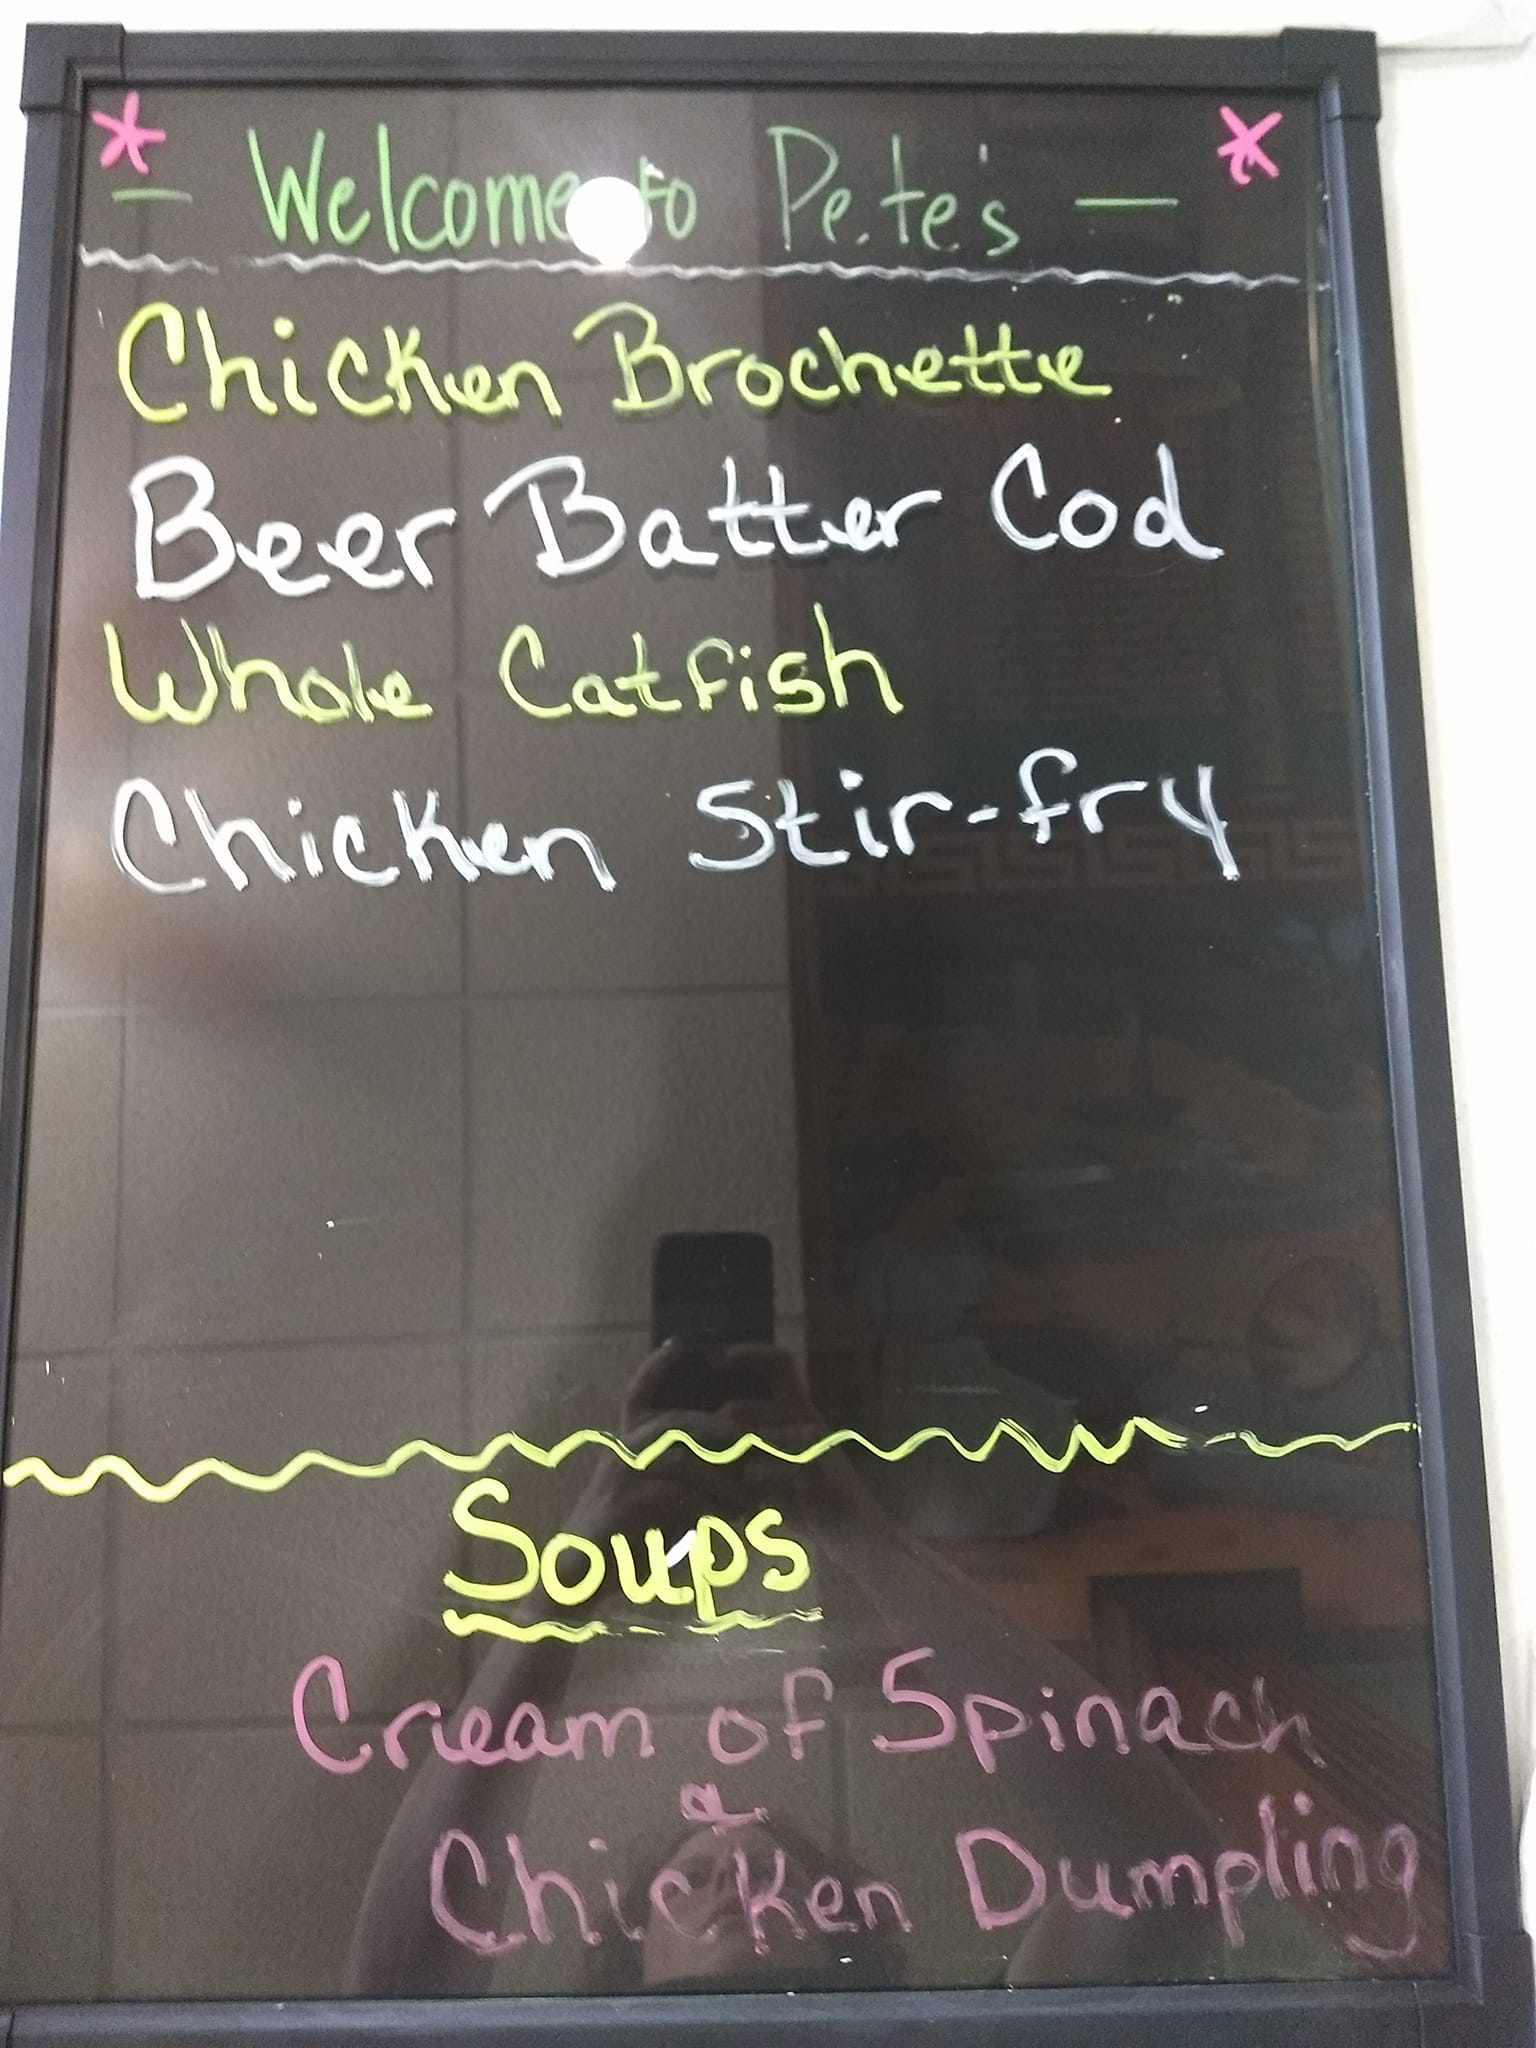 * - Welcome to Pete's - *
Chicken Brochette
Beer Batter Cod
Whole Catfish
Chicken Stir-fry
Soups
Cream of Spinach
&
Chicken Dumpling